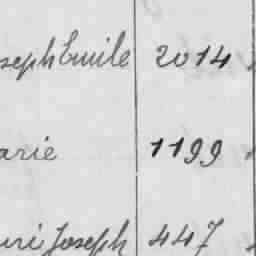 seph Emile 2014
arie 1199
uri Joseph 447